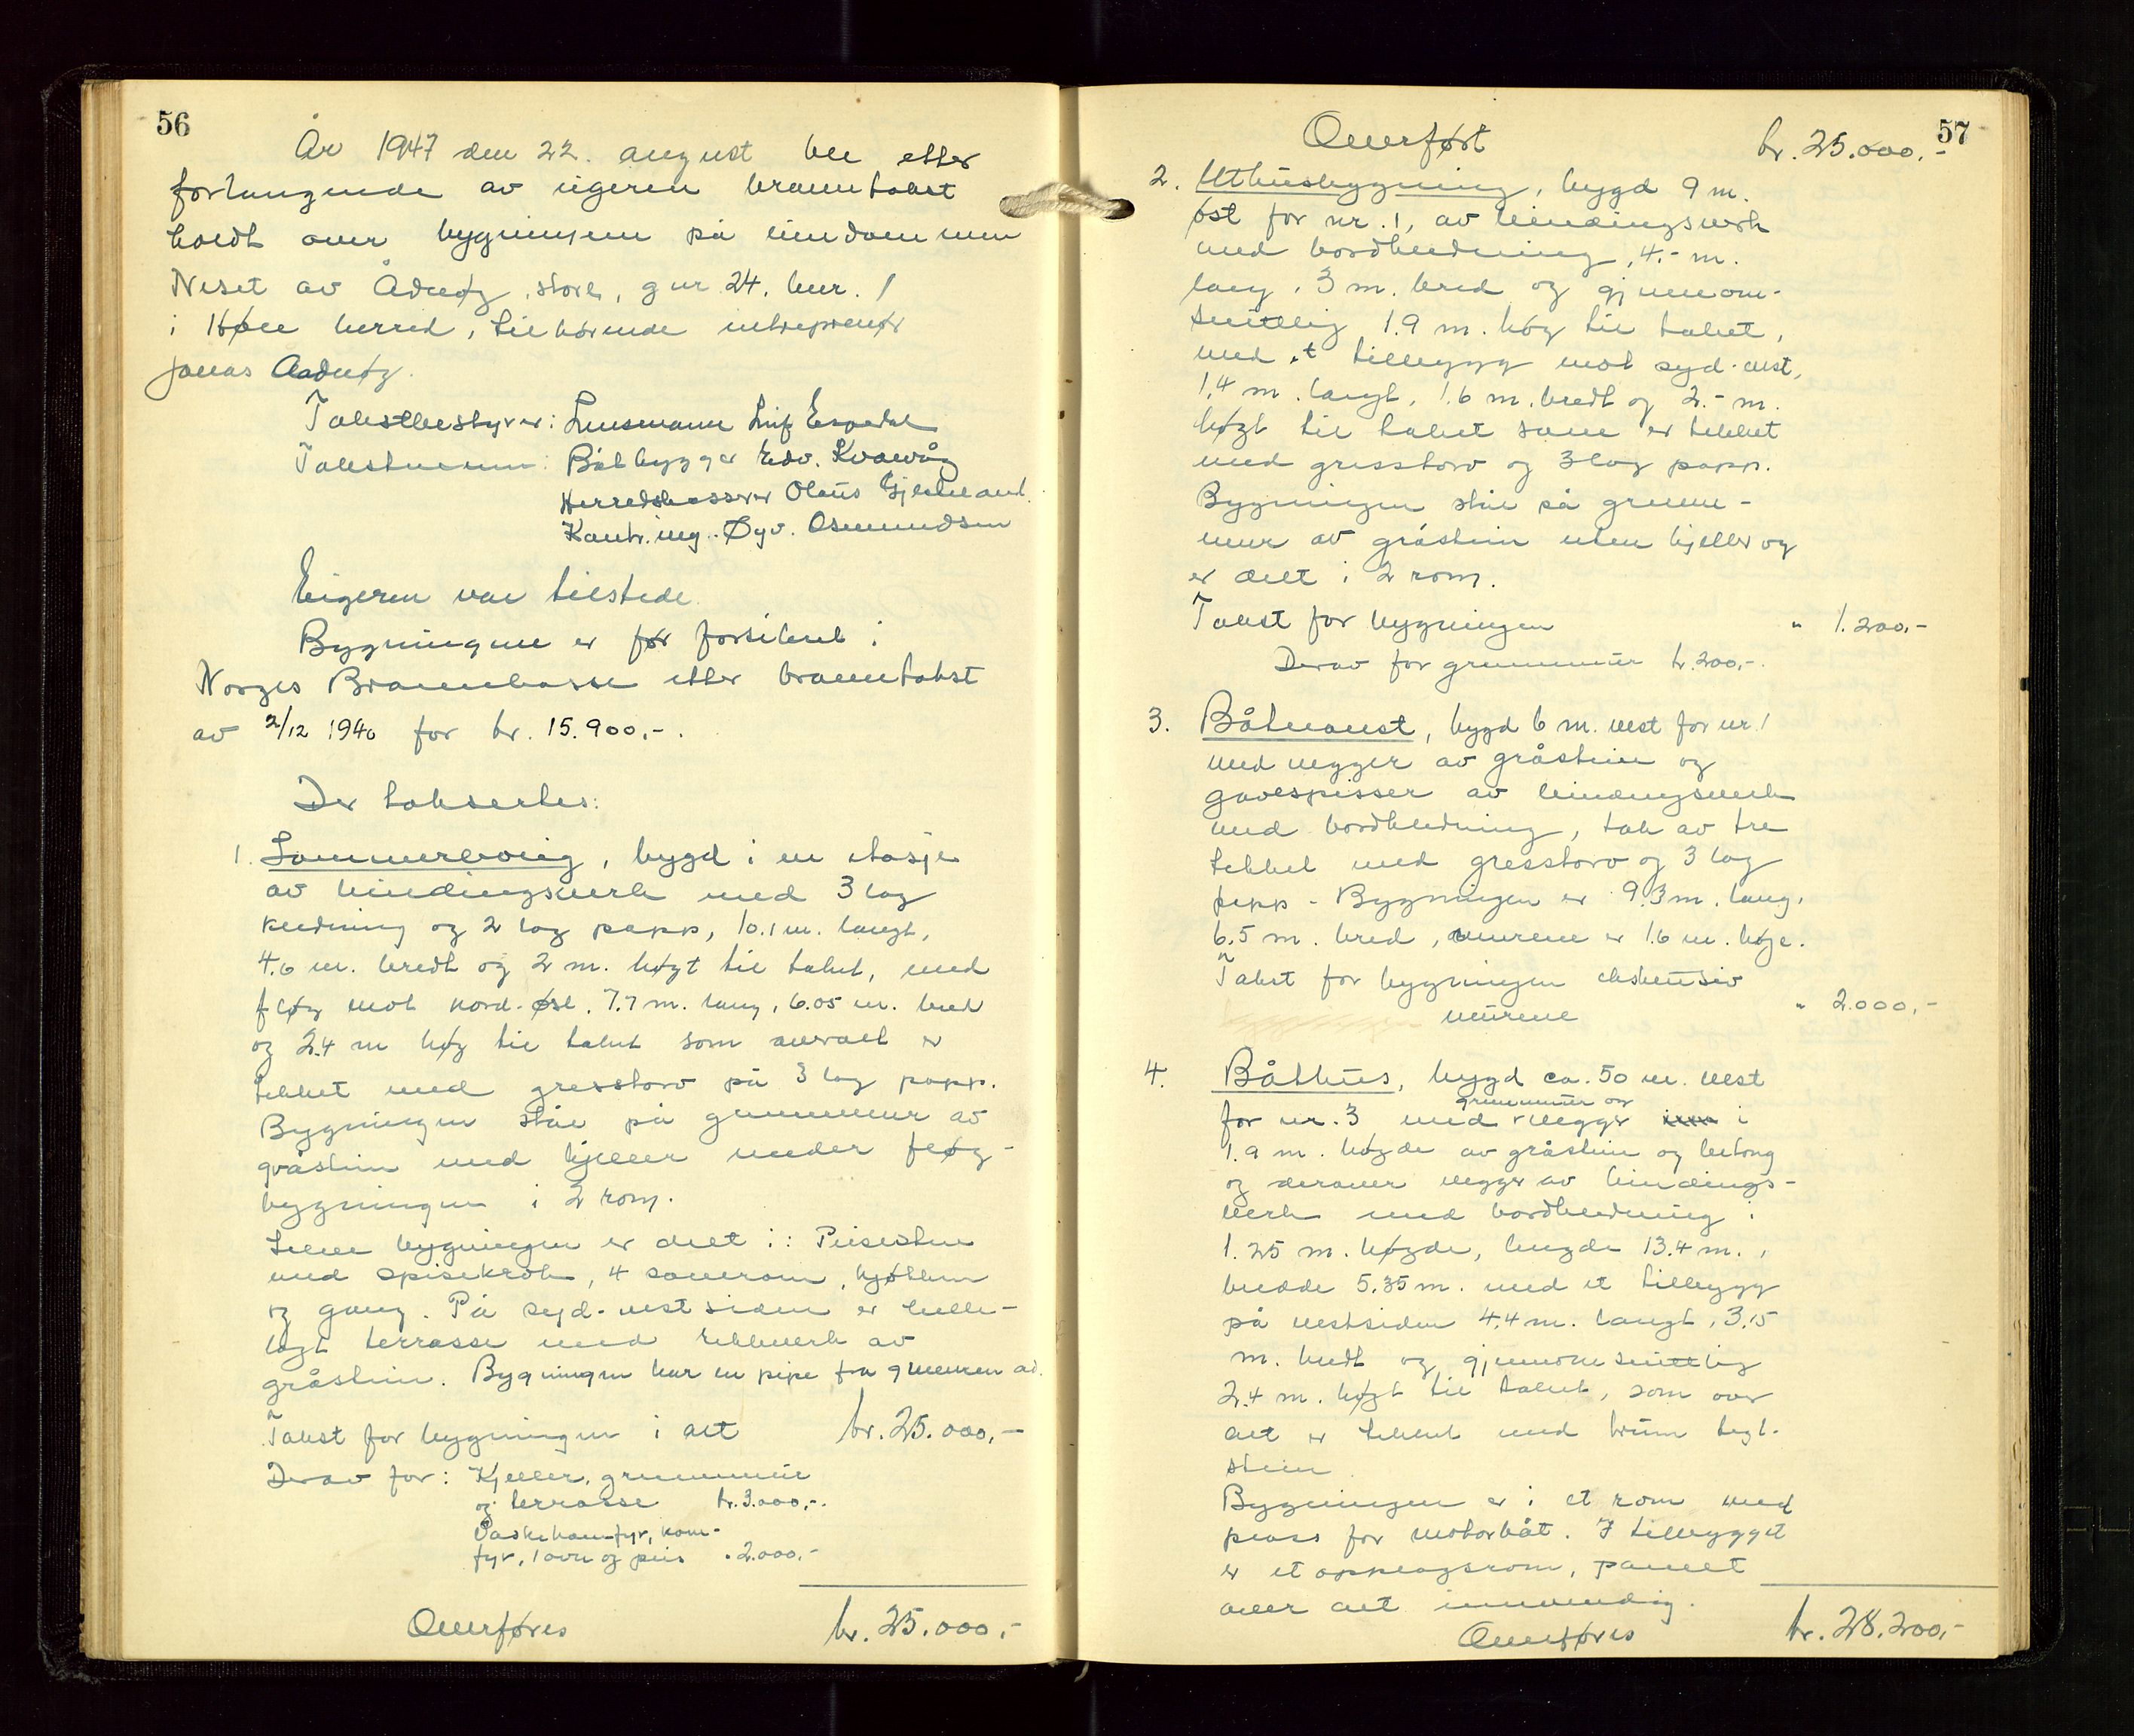 56
År 1947 den 22. august ble etter
forlangende av eigeren branntakst
holdt over bygningene på eiendommen
Neset av Ådnøy, store, g nr. 24, bnr. 1
i Høle herred, tilhørende entreprenør
Jonas Aadnøy.
Takstbestyrer: Lensmann Leif Espedal
Takstmenn: Båtbygger Edv. Kvavåg
Herredskasserer Olaus Gjesteland.
Kontr.ing. Øyv. Osmundsen
Eigeren var tilstede.
Bygningene er før forsikret i
Norges Brannkasse etter branntakst
av 2/12 1940 for kr. 15.900,-.
Der taksertes:
1. Sommerbolig, bygd i en etasje
av bindingsverk med 3 lag
kledning og 2 lag papp, 10.1 m. langt,
4.6 m. bredt og 2 m. høgt til taket, med
fløy mot nord-øst, 7.7 m. lang, 6.05 m. bred
og 2.4 m høg til taket som overalt er
tekket med gresstorv på 3 lag papp.
Bygningen står på grunnmur av
gråstein med kjeller under fløy-
bygningen i 2 rom.
Selve bygningen er delt i: Peisestue
med spisekrok, 4 soverom, kjøkken
og gang. På syd-vest siden er helle-
lagt terrasse med rekkverk av
gråstein. Bygningen har en pipe fra grunnen av.
Takst for bygningen i alt kr. 25.000,-
Derav for: Kjeller, grunnmur
og terrasse kr. 3.000,-.
Vaskekom-fyr, kom-
fyr, 1 ovn og peis " 2.000,-
Overføres kr. 25.000,-
57
Overført kr. 25.000,-
2. Uthusbygning, bygd 9 m.
øst for nr. 1, av bindingsverk
med bordkledning, 4.- m.
lang, 3 m. bred og gjennom-
snittlig 1.9 m. høg til taket,
med et tilbygg mot syd-vest,
1.4 m. langt, 1.6 m. bredt og 2.- m.
høgt til taket som er tekket
med gresstorv og 3 lag papp.
Bygningen står på grunn-
mur av gråstein uten kjeller og
er delt i 2 rom.
Takst for bygningen " 1.200,-
Derav for grunnmur kr. 200,-.
3. Båtnaust, bygd 6 m. vest for nr. 1
med vegger av gråstein og
gavlspisser av bindingsverk
med bordkledning, tak av tre
tekket med gresstorv og 3 lag
papp - Bygningen er 9.3 m. lang,
6.5 m. bred, murene er 1.6 m. høge.
Takst for bygningen eksklusiv
murene " 2.000,-
4. Båthus, bygd ca. 50 m. vest
for nr. 3 med grunnmur og vegger i
1.9 m. høgde av gråstein og betong
og derover vegger av bindings-
verk med bordkledning i
1.25 m. høgde, lengde 13.4 m.,
bredde 5.35 m. med et tilbygg
på vestsiden 4.4 m. langt, 3.15
m. bredt og gjennomsnittlig
2.4 m. høgt til taket, som over
alt er tekket med krum tegl-
stein
Bygningen er i et rom med
plass for motorbåt. I tilbygget
er et opplagsrom, panelt
over alt innvendig.
Overføres kr. 28.200,-